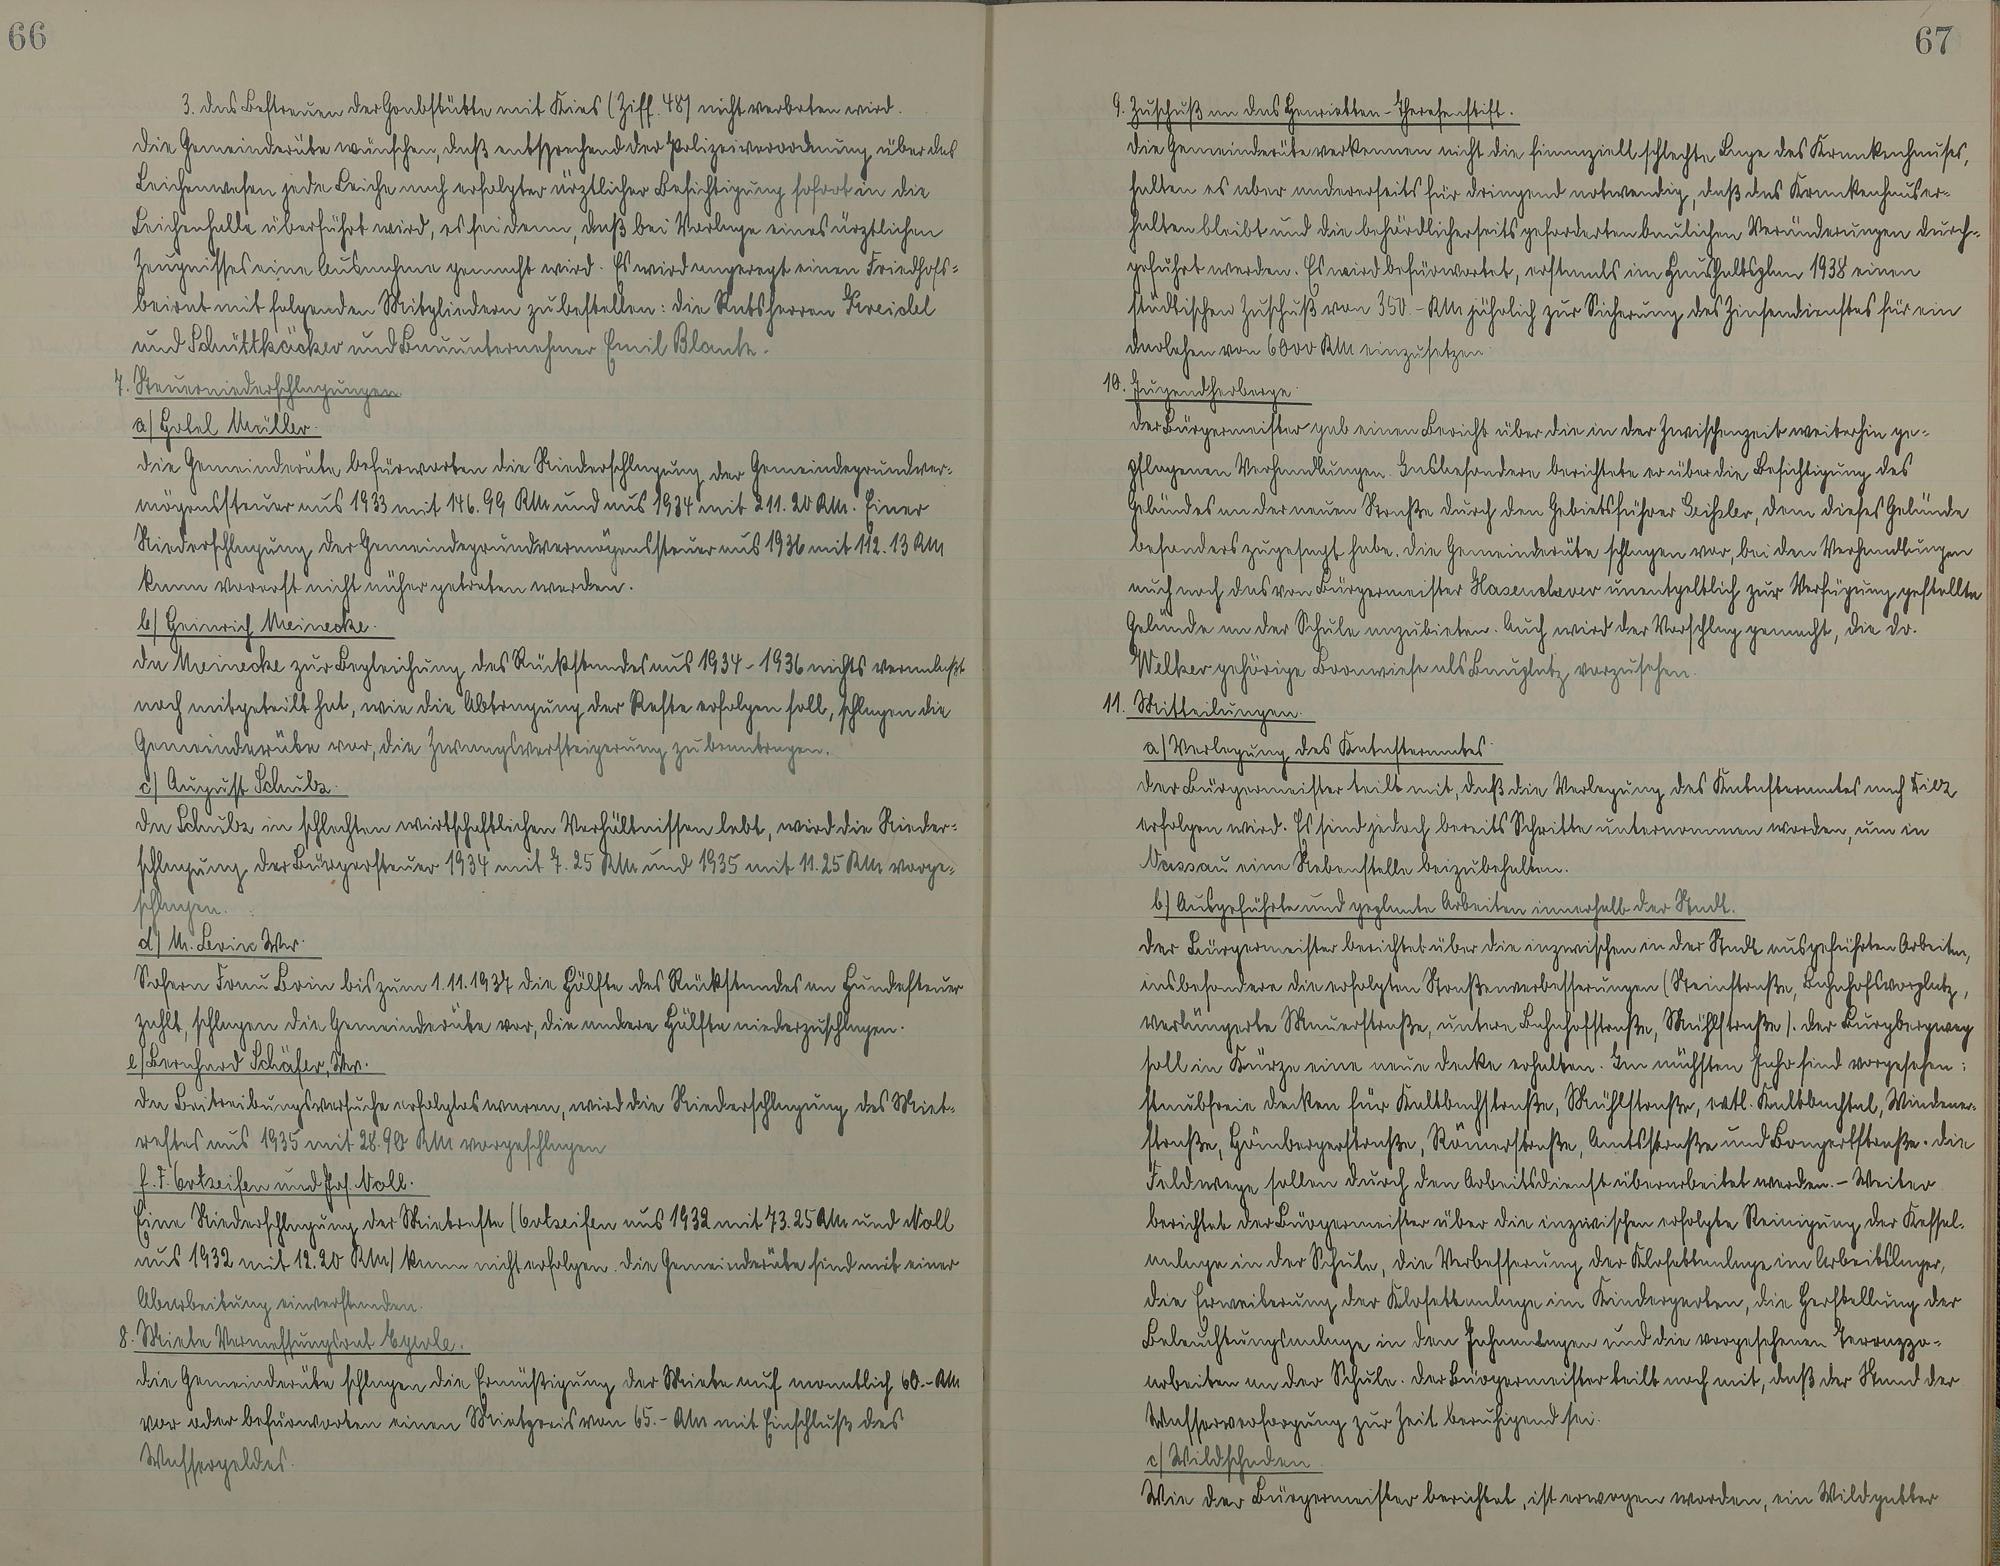 66
3. das Bestreuen der Grabstätte mit Kies (Ziff. 48) nicht verboten wird.
Die Gemeinderäte wünschen, daß entsprechend der Polizeiverordnung über das
Leichenwesen jede Leiche nach erfolgter ärztlicher Besichtigung sofort in die
Leichenhalle überführt wird, es sei denn, daß bei Vorlage eines ärztlichen
Zeugnisses eine Ausnahme gemacht wird. Es wird angeregt einen Friedhofs=
beirat mit folgenden Mitgliedern zu bestellen: Die Ratsherren Kreidel
und Schüttkäcker und Bauunternehmer Emil Blank.
7. Steuerniederschlagungen
a) Hotel Müller.
Die Gemeinderäte befürworten die Niederschlagung der Gemeindegrundver=
mögenssteuer aus 1933 mit 146.99 RM und aus 1934 mit 211.20 RM. Einer
Niederschlagung der Gemeindegrundvermögenssteuer aus 1936 mit 112.13 RM
kann vorerst nicht näher getreten werden.
b) Heinrich Meinecke.
Da Meinecke zur Begleichung des Rückstandes aus 1934-1936 nichts veranlaßt
noch mitgeteilt hat, wie die Abtragung der Reste erfolgen soll, schlagen die
Gemeinderäte vor, die Zwangsversteigerung zu beantragen.
c) August Schulz.
Da Schulz in schlechten wirtschaftlichen Verhältnissen lebt, wird die Nieder=
schlagung der Bürgersteuer 1934 mit 7.25 RM und 1935 mit 11.25 RM vorge=
schlagen.
d) M. Levin Ww.
Sofern Frau Levin bis zum 1.11.1937 die Hälfte des Rückstandes an Hundesteuer
zahlt, schlagen die Gemeinderäte vor, die andere Hälfte niederzuschlagen.
e) Bernhard Schäfer, Ww.
Da Beitreibungsversuche erfolglos waren, wird die Niederschlagung des Miet=
restes aus 1935 mit 28.90 RM vorgeschlagen
f. F. Ortseifen und Jos. Noll.
Eine Niederschlagung der Mietreste (Ortseifen aus 1932 mit 73.25 RM und Noll
aus 1932 mit 12.20 RM) kann nicht erfolgen. Die Gemeinderäte sind mit einer
Abarbeitung einverstanden.
8. Miete Vermessungsrat
Die Gemeinderäte schlagen die Ermäßigung der Miete auf monatlich 60.- RM
vor oder befürworten einen Mietpreis von 65.- RM mit Einschluß des
Wassergeldes.
67
9. Zuschuß an das Henrietten-Theresenstift.
Die Gemeinderäte verkennen nicht die finanziell schlechte Lage des Krankenhauses,
halten es aber andererseits für dringend notwendig, daß das Krankenhaus er=
halten bleibt und die behördlicherseits geforderten baulichen Veränderungen durch=
geführt werden. Es wird befürwortet, erstmals im Haushaltsplan 1938 einen
städtischen Zuschuß von 350.- RM jährlich zur Sicherung des Zinsendienstes für ein
Darlehen von 6000 RM einzusetzen
10. Jugendherberge
Der Bürgermeister gab einen Bericht über die in der Zwischenzeit weiterhin ge=
pflogenen Verhandlungen. Insbesondere berichtete er über die Besichtigung des
Geländes an der neuen Straße durch den Gebietsführer, dem dieses Gelände
besonders zugesagt habe. Die Gemeinderäte schlagen vor, bei den Verhandlungen
auch noch das von Bürgermeister Hasenclever unentgeltlich zur Verfügung gestellte
Gelände an der Schule anzubieten. Auch wird der Vorschlag gemacht, die Dr.
Welker gehörige wiese als Bauplatz vorzusehen.
11. Mitteilungen.
a) Verlegung des Katasteramtes
Der Bürgermeister teilt mit, daß die Verlegung des Katasteramtes nach Diez
erfolgen wird. Es sind jedoch bereits Schritte unternommen worden, um in
Nassau eine Nebenstelle beizubehalten.
b) Ausgeführte und geplante Arbeiten innerhalb der Stadt.
Der Bürgermeister berichtet über die inzwischen in der Stadt ausgeführten Arbeiten,
insbesondere die erfolgten Straßenverbesserungen (Steinstraße, Bahnhofsvorplatz,
verlängerte Mauerstraße, untere Bahnhofstraße, Mühlstraße). Der Burgbergweg
soll in Kürze eine neue Decke erhalten. Im nächsten Jahr sind vorgesehen:
staubfreie Decken für Kaltbachstraße, Mühlstraße, evtl. Kaltbachtal, Windener=
straße, Hömbergerstraße, Römerstraße, Amtsstraße und Bongertstraße. Die
Feldwege sollen durch den Arbeitsdienst überarbeitet werden. - Weiter
berichtet der Bürgermeister über die inzwischen erfolgte Reinigung der Kessel=
anlage in der Schule, die Verbesserung der Klosettanlage im Arbeitslager,
die Erweiterung der Klosettanlage im Kindergarten, die Herstellung der
Beleuchtungsanlage in den Jahnanlagen und die vorgesehenen Terrazzo=
arbeiten an der Schule. Der Bürgermeister teilt noch mit, daß der Stand der
Wasserversorgung zur Zeit beruhigend sei.
c) Wildschaden
Wie der Bürgermeister berichtet, ist erwogen worden, ein Wildgatter